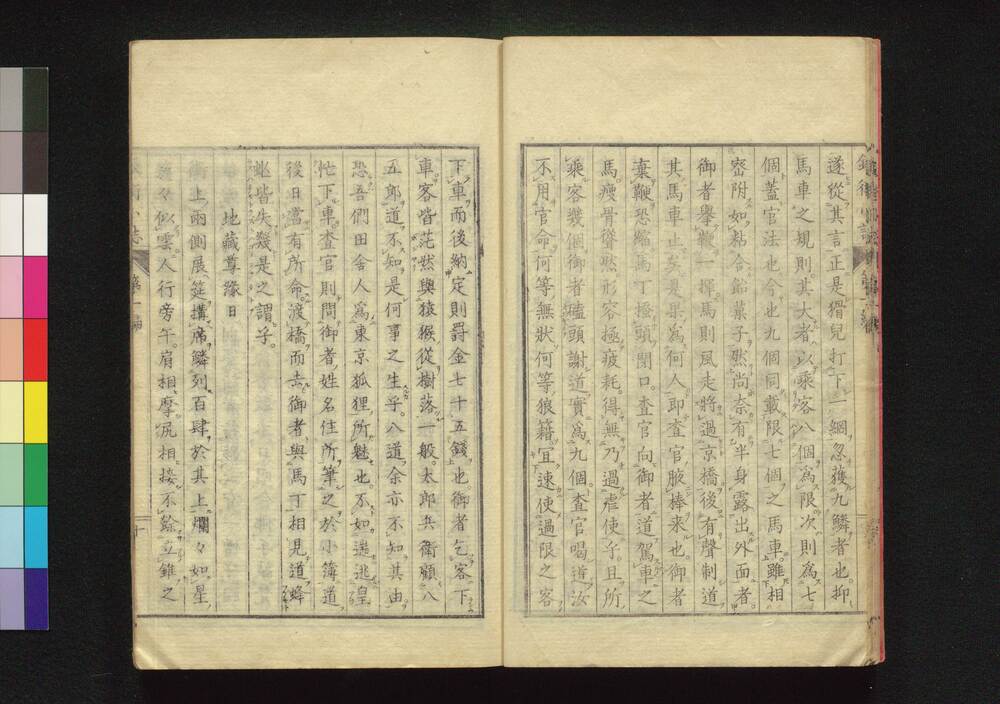 遂從其言正是猾兒打下一網忽獲九鱗者也抑
馬車之規則其大者以乘客八個爲限次則爲七
個蓋官法也今也九個同載限七個之馬車雖相
密附如粘合飴菓子然尚奈有半身露出外面者
御者擧鞭一揮馬則風走將過京橋後有聲制道
其馬車止矣臭杲爲何人卽査官腋棒来也御者
棄鞭恐縮馬丁搔頭閉口査官向御者道駕車之
馬瘦骨聳然形容極疲耗得無乃過虐使乎且所
乘客幾個御者磕頭謝道實爲九個査官喝道汝
不用官命何等無狀何等狼籍宜速使過限之客
下車而後納定則罰金七十五錢也御者乞客下
車客皆茫然與猿猴從樹落一般太郎兵衛顧八
五郎道不知是何事之生乎八道余亦不知其由
恐吾們田舍人爲東京狐狸所魅也不如遁逃皇
忙下車査官則問御者姓名住所筆之於小簿道
後日當有所命渡橋而去御者與馬丁相見道蜂
虻皆失幾是之謂乎
地藏尊緣日
街上兩側展筵搆席鱗列百肆於其上爛々如星
簇々似雲人行旁午肩相摩尻相接不餘立錐之